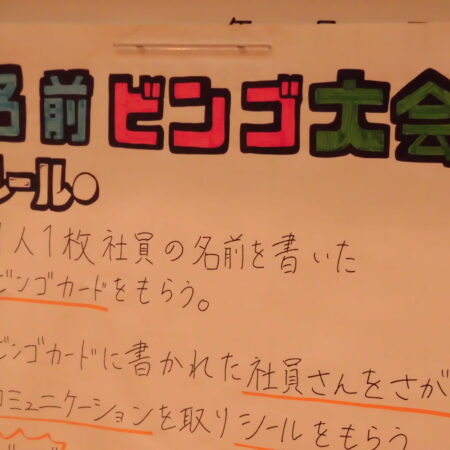 名前ビンゴ大会
ルール●
1人1枚社員の名前を書いた
ビンゴカードをもらう。
ビンゴカードに書かれた社員さんをさが
コミュニケーションを取りシールをもらう